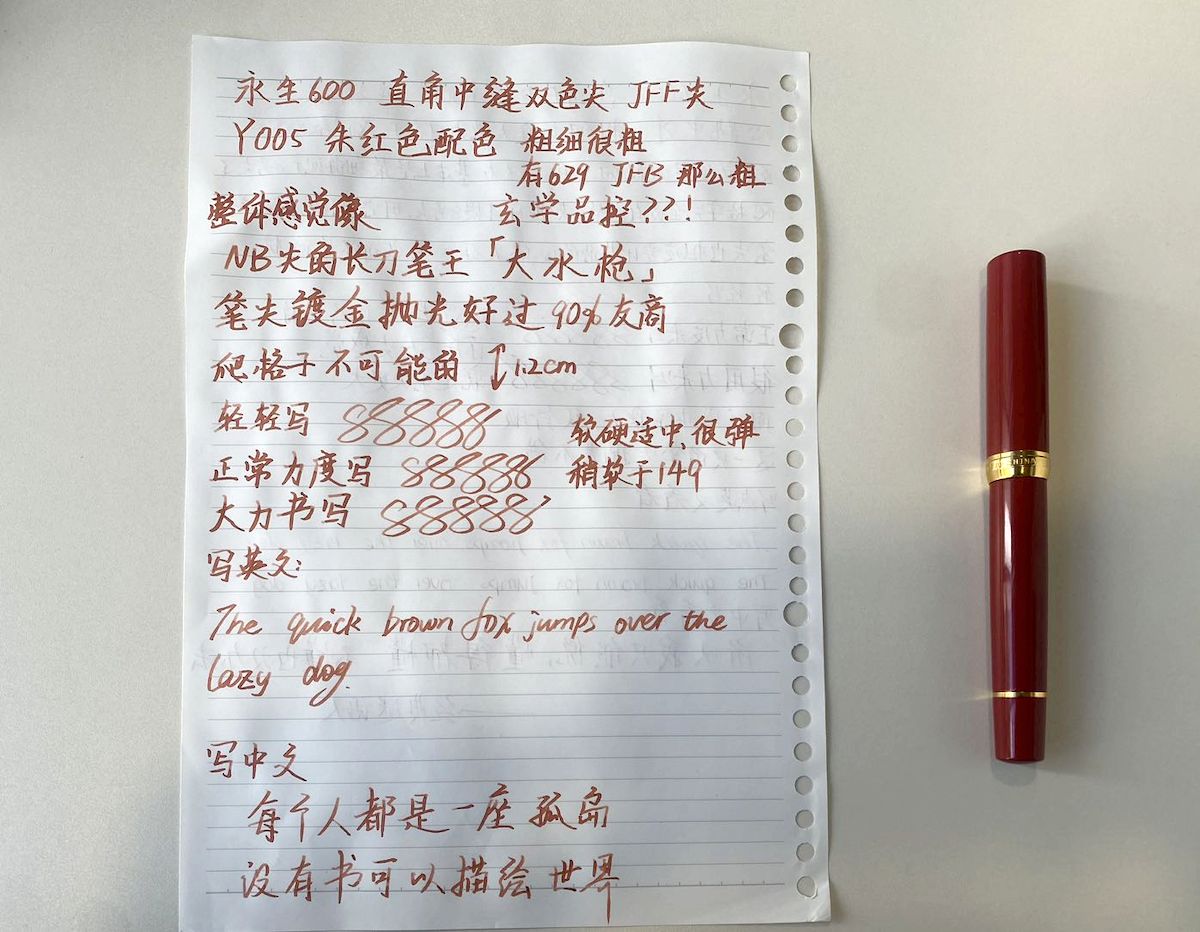 永生600 直角中缝双色尖 JFF尖
Y005 朱红色配色 粗细很粗
有629 JFB 那么粗
整体感觉像 玄学品控??!
NB尖的长刀笔王「大水枪」
笔尖镀金抛光好过90%友商
爬格子不可能的 ↕1.2cm
轻轻写 888888 软硬适中、很弹
正常力度写 888888 稍软于149
大力书写 888888
写英文:
The quick brown fox jumps over the
lazy dog.
写中文
每个人都是一座孤岛
没有书可以描绘世界
CHINA